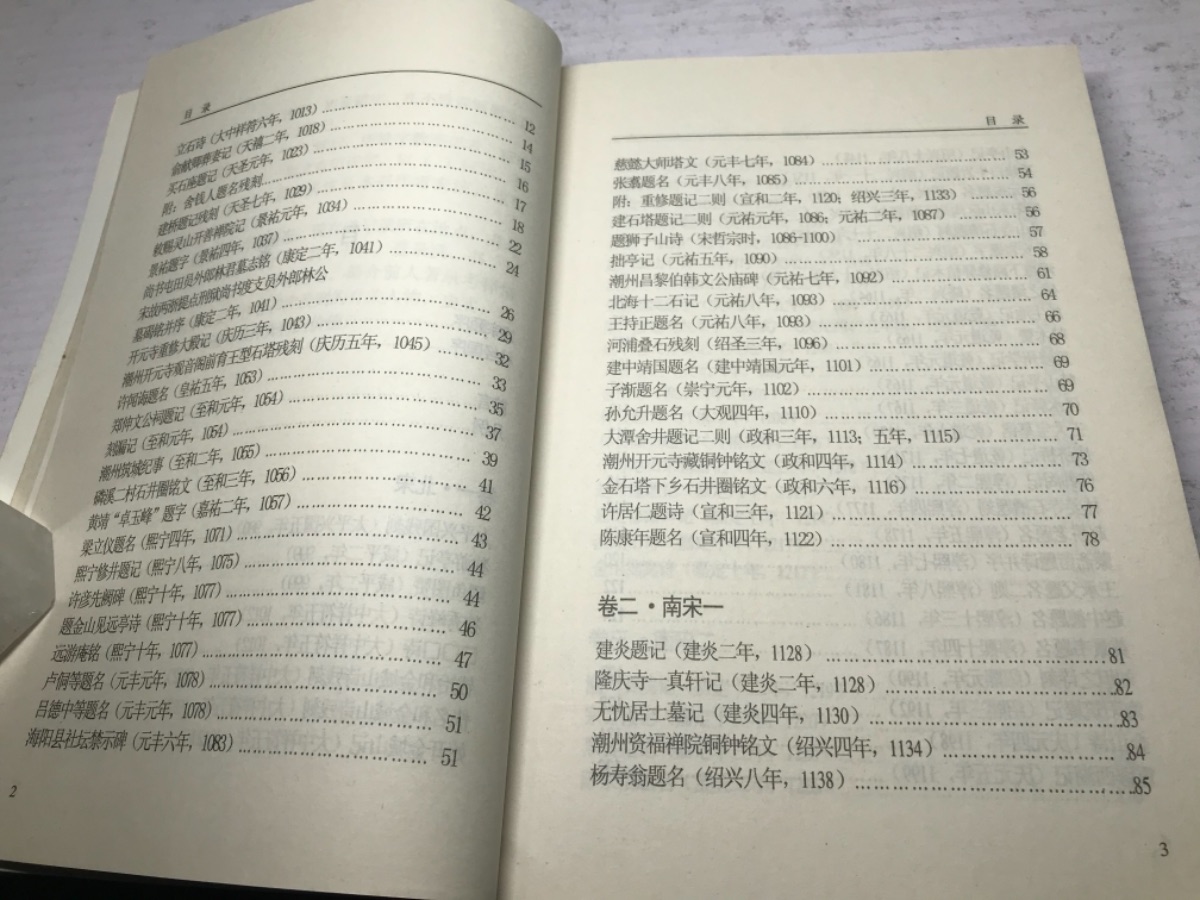 目 录
立石诗（大中祥符六年，1013）………………………… 12
俞献卿葬妻记（天禧二年，1018）………………………… 14
买石座题记（天圣元年，1023）………………………… 15
附：舍钱人题名残刻………………………… 16
建桥题记残刻（天圣七年，1029）………………………… 17
敕赐灵山开善禅院记（景祐元年，1034）………………………… 18
景祐题字（景祐四年，1037）………………………… 22
尚书屯田员外郎林君墓志铭（康定二年，1041）………………… 24
宋故两浙提点刑狱尚书度支员外郎林公
墓碣铭并序（康定二年，1041）………………………… 26
开元寺重修大殿记（庆历三年，1043）………………………… 29
潮州开元寺观音阁前育王型石塔残刻（庆历五年，1045）………… 32
许闻诲题名（皇祐五年，1053）………………………… 33
郑伸文公祠题记（至和元年，1054）………………………… 35
刻漏记（至和元年，1054）………………………… 37
潮州筑城纪事（至和二年，1055）………………………… 39
磷溪二村石井圈铭文（至和三年，1056）………………………… 41
黄靖“卓玉峰”题字（嘉祐二年，1057）………………………… 42
梁立仪题名（熙宁四年，1071）………………………… 43
熙宁修井题记（熙宁八年，1075）………………………… 44
许彦先阙碑（熙宁十年，1077）………………………… 44
题金山见远亭诗（熙宁十年，1077）………………………… 46
远游庵铭（熙宁十年，1077）………………………… 47
卢侗等题名（元丰元年，1078）………………………… 50
吕德中等题名（元丰元年，1078）………………………… 51
海阳县社坛禁示碑（元丰六年，1083）………………………… 51
2
目 录
慈懿大师塔文（元丰七年，1084）………………………… 53
张蒍题名（元丰八年，1085）………………………… 54
附：重修题记二则（宣和二年，1120；绍兴三年，1133）………… 56
建石塔题记二则（元祐元年，1086；元祐二年，1087）………… 56
题狮子山诗（宋哲宗时，1086-1100）………………………… 57
拙亭记（元祐五年，1090）………………………… 58
潮州昌黎伯韩文公庙碑（元祐七年，1092）………………………… 61
北海十二石记（元祐八年，1093）………………………… 64
王持正题名（元祐八年，1093）………………………… 66
河浦叠石残刻（绍圣三年，1096）………………………… 68
建中靖国题名（建中靖国元年，1101）………………………… 69
子渐题名（崇宁元年，1102）………………………… 69
孙允升题名（大观四年，1110）………………………… 70
大潭舍井题记二则（政和三年，1113；五年，1115）………… 71
潮州开元寺藏铜钟铭文（政和四年，1114）………………………… 73
金石塔下乡石井圈铭文（政和六年，1116）………………………… 76
许居仁题诗（宣和三年，1121）………………………… 77
陈康年题名（宣和四年，1122）………………………… 78
卷二·南宋一
建炎题记（建炎二年，1128）………………………… 81
隆庆寺一真轩记（建炎二年，1128）………………………… 82
无忧居士墓记（建炎四年，1130）………………………… 83
潮州资福禅院铜钟铭文（绍兴四年，1134）………………………… 84
杨寿翁题名（绍兴八年，1138）………………………… 85
3